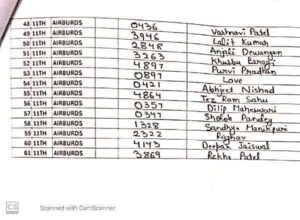 48 11TH AIRBURDS 0436 Vaishnavi Patel
49 11TH AIRBURDS 3946 Lalit Kumar
50 11TH AIRBURDS 2848 Anjali Dewangan
51 11TH AIRBURDS 3263 Khushbu
52 11TH AIRBURDS 4897 Purvi Pradhan
53 11TH AIRBURDS 0897 Love
54 11TH AIRBURDS 0421 Abhijeet Nishad
55 11TH AIRBURDS 4864 Tez Ram Sahu
56 11TH AIRBURDS 0357 Dilip Maheswari
57 11TH AIRBURDS 0347 Shlok Pandey
58 11TH AIRBURDS 1328 Sandhya Manikpuri
59 11TH AIRBURDS 2322 Raghav
60 11TH AIRBURDS 4143 Deepak Jaiswal
61 11TH AIRBURDS 3869 Rekha Patel
CS Scanned with CamScanner